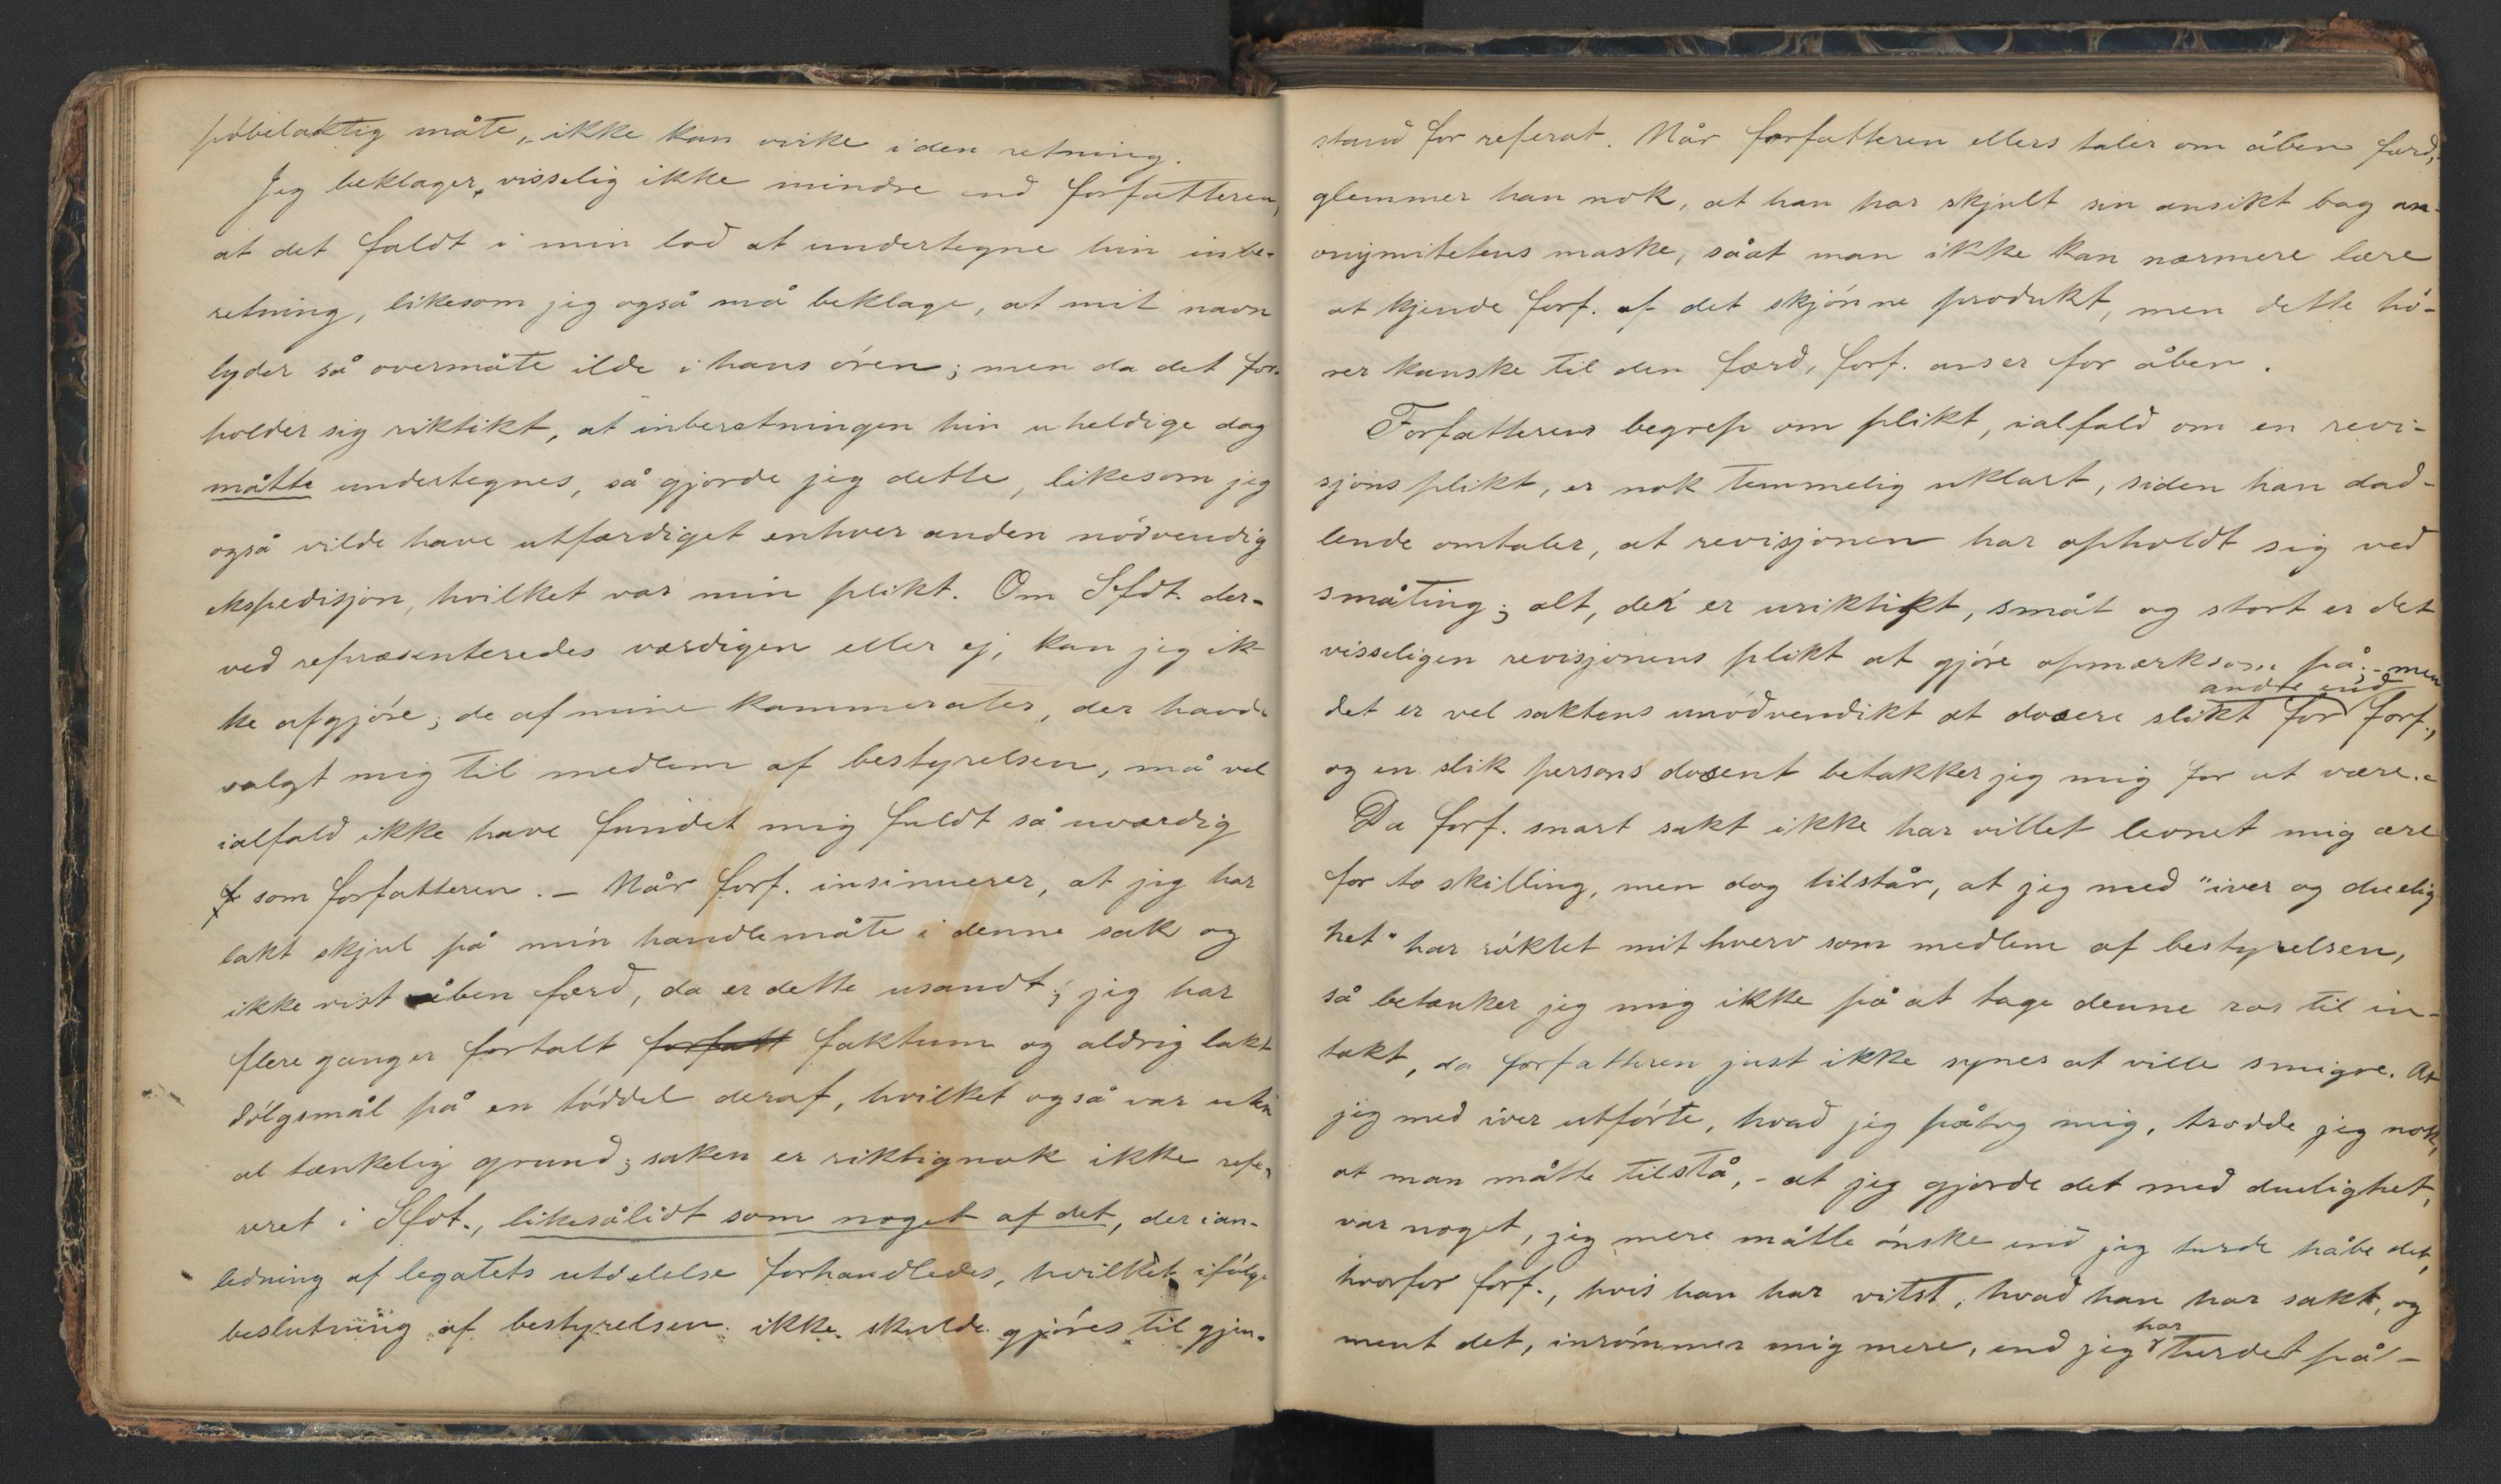 pöbelaktig måte, ikke kan virke i den retning.
Jeg beklager, visselig ikke mindre end forfatteren,
at det faldt i min lod at undertegne hin inbe-
retning, likesom jeg også må beklage, at mit navn
lyder så overmåte ilde i hans ören; men da det for-
holder sig riktikt, at inberetningen hin uheldige dag
måtte undertegnes, så gjorde jeg dette, likesom jeg
også vilde have utfærdiget enhver anden nödvendig
ekspedisjon, hvilket var min plikt. Om Sfdt. der-
ved repræsenteredes værdigen eller ej, kan jeg ik-
ke afgjöre; de af mine kammerater, der havde
valgt mig til medlem af bestyrelsen, må vel
ialfald ikke have fundet mig fuldt så uværdig
som forfatteren. – Når forf. insinuerer, at jeg har
lakt skjul på min handlemåte i denne sak og
ikke vist åben færd, da er dette usandt; jeg har
flere ganger fortalt forfatt faktum og aldrig lakt
dölgsmål på en töddel deraf, hvilket også var uten
al tænkelig grund; saken er riktignok ikke refe-
reret i Sfdt., likesålidt som noget af det, der i an-
ledning af legatets utdelelse forhandledes, hvilket ifölge
beslutning af bestyrelsen ikke skulde gjöres til gjen-
stand for referat. Når forfatteren ellers taler om åben færd,
glemmer han nok, at han har skjult sin ansikt bag an-
onymitetens maske, såat man ikke kan nærmere lære
at kjende forf. af det skjönne produkt, men dette hö-
rer kanske til den færd, forf. anser for åben.
Forfatterens begrep om plikt, ialfald om en revi-
sjons plikt, er nok temmelig uklart, siden han dad-
lende omtaler, at revisjonen har opholdt sig ved
småting; alt, der er uriktikt, småt og stort er det
visseligen revisjonens plikt at gjöre opmærksom på; - men
det er vel saktens unödvendikt at dosere slikt for andre end forf.,
og en slik persons dosent betakker jeg mig for at være. -
Da forf. snart sakt ikke har villet levnet mig ære
for to skilling, men dog tilstår, at jeg med "iver og duelig-
het" har röktet mit hverv som medlem af bestyrelsen,
så betænker jeg mig ikke på at tage denne ros til in-
takt, da forfatteren just ikke synes at ville smigre. At
jeg med iver utförte, hvad jeg påtog mig, trodde jeg nok,
at man måtte tilstå, - at jeg gjorde det med duelighet,
var noget, jeg mere måtte önske end jeg turde håbe det,
hvorfor forf., hvis han har vitst, hvad han har sakt, og
ment det, inrömmer mig mere, end jeg har turdet på-